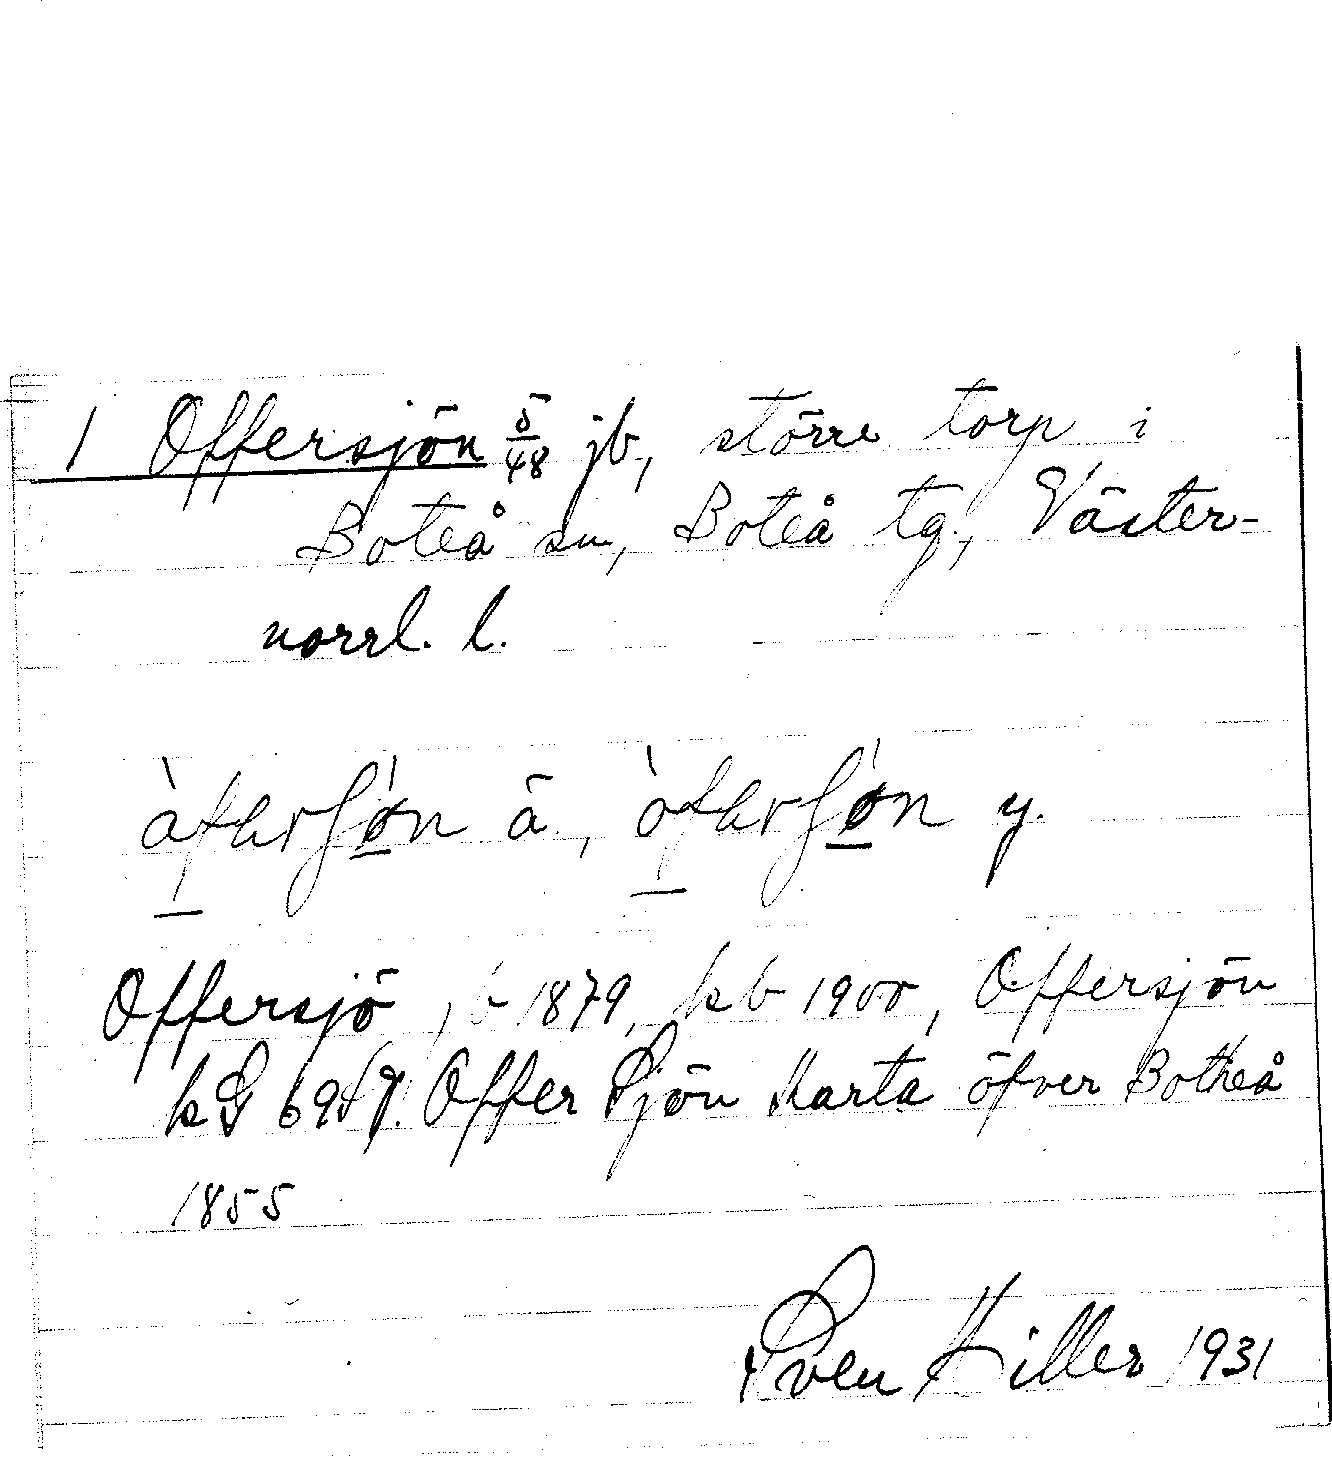 1 Offersjön 5/48 jb, större torp i
Boteå sn, Boteå tg, Väster-
norrl. l.
ä., y.
Offersjö, b 1879, kb 1900, Offersjön
Offer Sjön Karta öfver Botheå
1855
Sven Hiller 1931